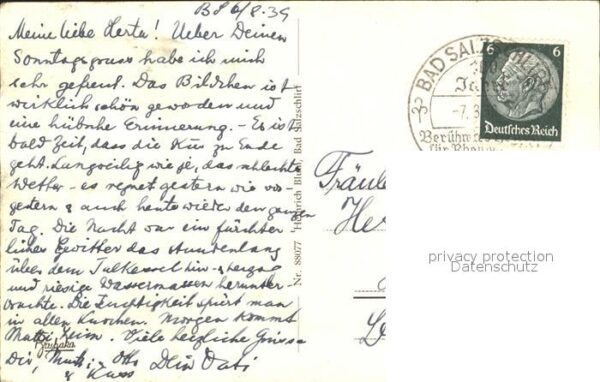 BS 6/8.39
Meine liebe Herta! Ueber Deinen
Sonntagsgruss habe ich mich
sehr gefreut. Das Bildchen ist
wirklich schön geworden und
eine hübsche Erinnerung. - Es ist
bald Zeit, dass die Kur zu Ende
geht. Langweilig wie je, das schlechte
Wetter - es regnet gestern wie vor-
gestern & auch heute wieder den ganzen
Tag. Die Nacht war ein fürchter
liches Gewitter das stundenlang
über dem Talkessel hin & herzog
und riesige Wassermassen herunter-
brachte. Die Feuchtigkeit spürt man
in allen Knochen. Morgen kommt
Mutti heim. Viele herzliche Grüsse
Dir, Otto Dein Vati
& Kuss
Nr. 88077 Heinrich Bloh, Bad Salzschlirf
BAD SALZSCHLIRF
-7.8.
Berühmtes
für Rheu
6 6
Deutsches Reich
Fräule
Her
privacy protection
Datenschutz